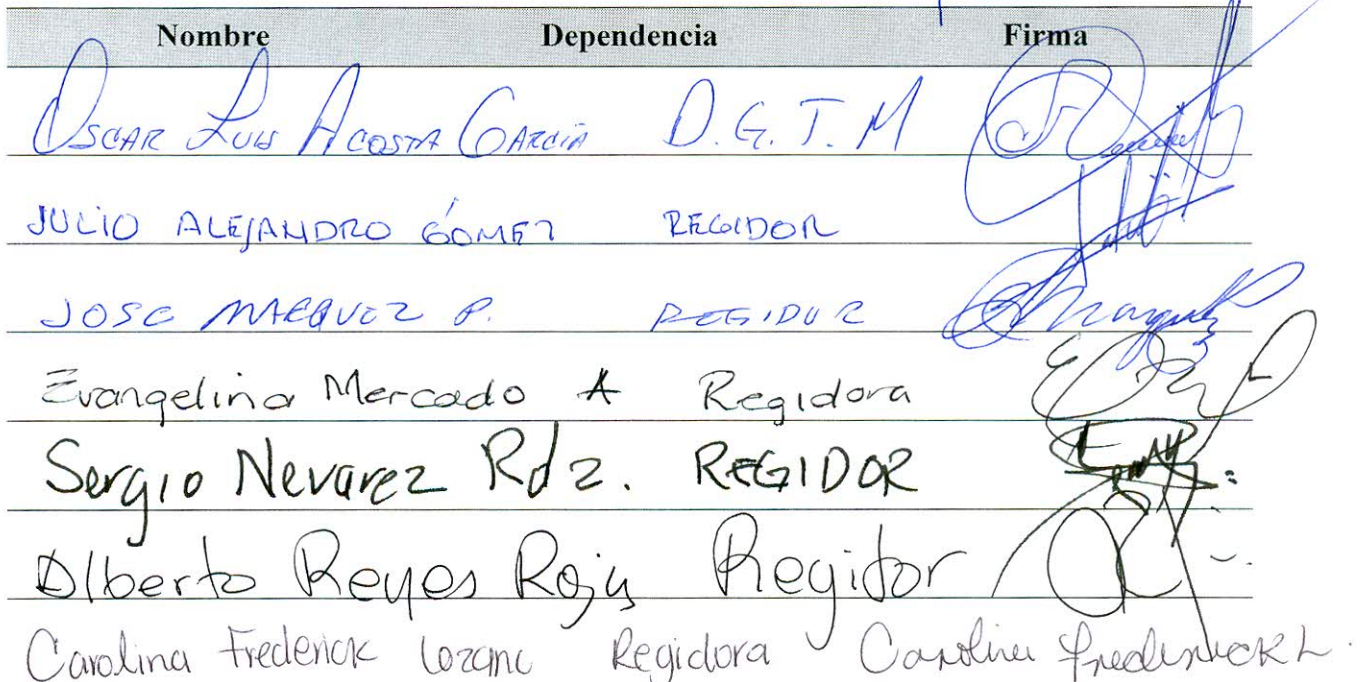 Nombre Dependencia Firma
Oscar Luis Acosta García D. G. T. M
JULIO ALEJANDRO GÓMEZ REGIDOR
JOSE MARQUEZ P. REGIDOR
Evangelina Mercado A Regidora
Sergio Nevarez Rdz. REGIDOR
Alberto Reyes Rojas Regidor
Carolina Frederick Lozano Regidora Carolina Frederick L.